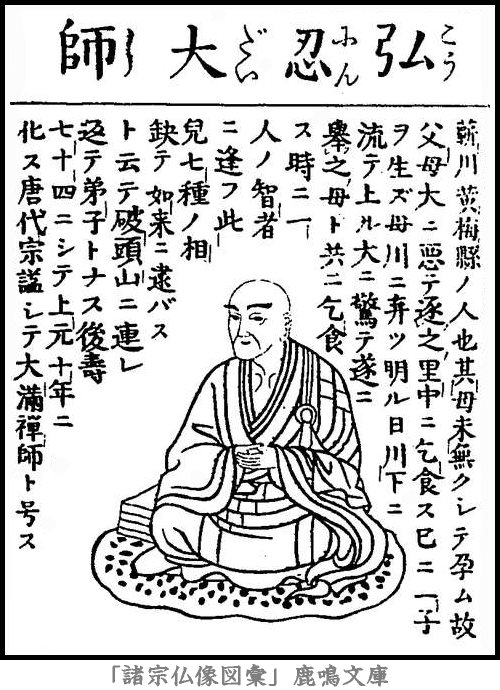 弘忍大師
こうにんだいし
蘄川黄梅縣ノ人也其母未無クシテ孕ム故
父母大ニ悪テ逐之里中ニ乞食ス已ニ一子
ヲ生ズ母川ニ弃ツ明ル日川下ニ
流テ上ル大ニ驚テ遂ニ
擧之母ト共ニ乞食
ス時ニ一
人ノ智者
ニ逢フ此
兒七種ノ相
缺テ如来ニ逮バス
ト云テ破頭山ニ連レ
返テ弟子トナス後壽
七十四ニシテ上元十年ニ
化ス唐代宗謚シテ大滿禪師ト号ス
「諸宗仏像図彙」鹿鳴文庫